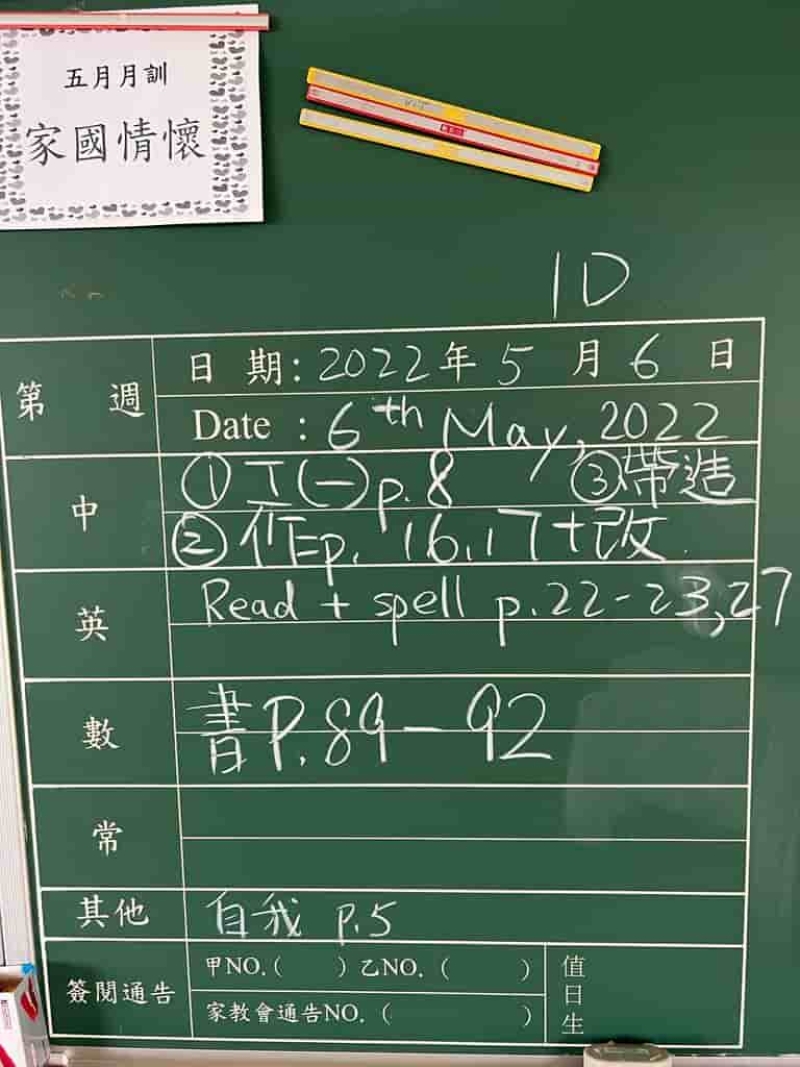 五月月訓
家國情懷
1D
第 週
日 期: 2022年 5 月 6 日
Date : 6th May, 2022
中
① 工(一)p.8 ③帶造
② 作p. 16,17+改
英
Read + spell p.22-23,27
數
書P.89-92
常
其他
自我 p.5
簽閱通告
甲NO.( ) 乙NO. ( )
家教會通告NO. ( )
值日生